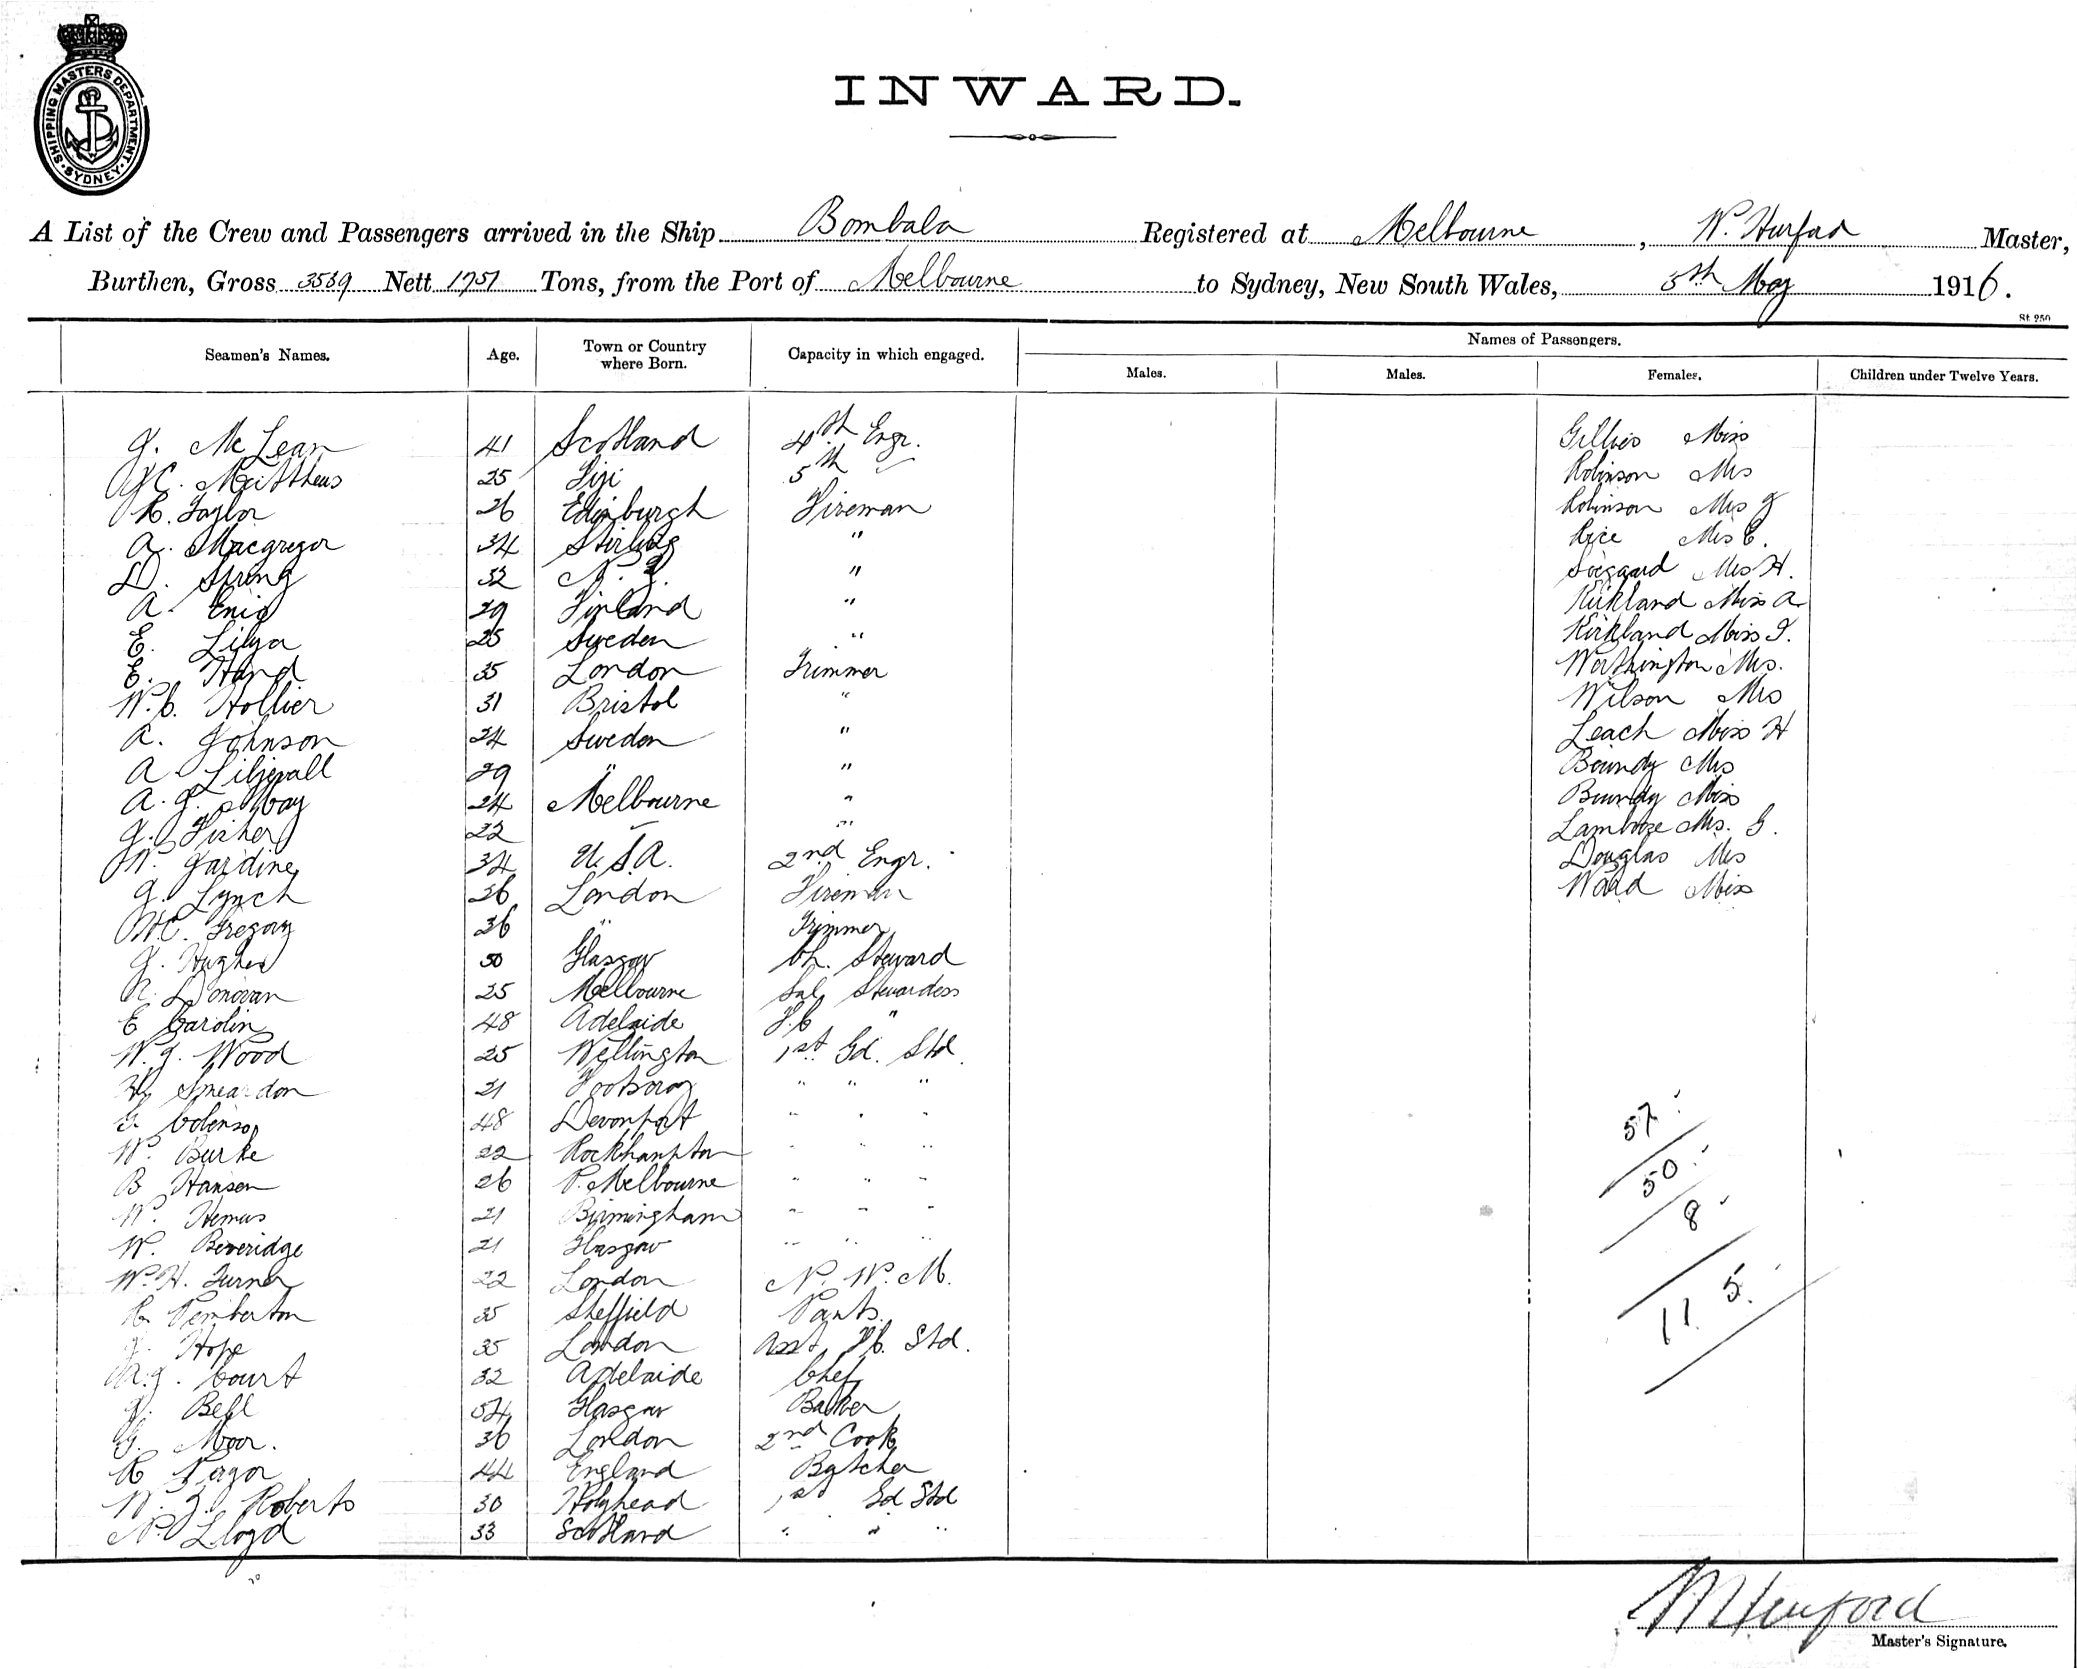 SHIPPING MASTERS DEPARTMENT.
SYDNEY
INWARD.
A List of the Crew and Passengers arrived in the Ship Bombala Registered at Melbourne, W. Hurford Master,
Burthen, Gross 3539 Nett 1751 Tons, from the Port of Melbourne to Sydney, New South Wales, 5th May 1916.
St 250
Seamen's Names. Age. Town or Country where Born. Capacity in which engaged. Names of Passengers.
Males. Males. Females. Children under Twelve Years.
J. McLean 41 Scotland 4th Engr. Gillies Miss
Matthews 25 Fiji 5th " Robinson Mrs
R. Taylor 26 Edinburgh Fireman Robinson Mrs J
A. Macgregor 34 Stirling " Rice Mrs C.
D. Spring 32 N. Z. " Mrs H.
A. 29 Finland " Kirkland Miss A
E. Lilya 25 Sweden " Kirkland Miss I.
E. Hand 35 London Trimmer Worthington Mrs.
W.C. Hollier 31 Bristol " Wilson Mrs
A. Johnson 24 Sweden " Leach Miss H
A Liljevall 29 " " Boundy Mrs
A. J. May 24 Melbourne " Boundy Miss
J. Fisher 22 " " Mrs. G.
W. Jardine 34 U.S.A. 2nd Engr. Douglas Mrs
J. Lynch 36 London Fireman Ward Miss
Gregory 36 " Trimmer
J. Hughes 50 Glasgow Ch. Steward
Donovan 25 Melbourne Sal. Stewardess
E Carolin 48 Adelaide F.C "
W. J. Wood 25 Wellington 1st Gd. Std.
H. Smeardon 21 Footscray " " "
Colenso 48 Devonport " " "
W. Burke 22 Rockhampton " " "
B Hansen 26 P. Melbourne " " "
W. Hemus 21 Birmingham " " "
W. Beveridge 21 Glasgow " " "
W. H. Turner 22 London N. W. M.
R. Pemberton 35 Sheffield Pants.
J. Hope 35 London Asst. Std.
Court 32 Adelaide Chef
J. Bell 54 Glasgow Baker
G. Moor. 36 London 2nd Cook
R 44 England Butcher
W. J. Roberts 30 Holyhead 1st Gd Std
N. Lloyd 33 Scotland " " "
57
50
8
115.
W Hurford
Master's Signature.